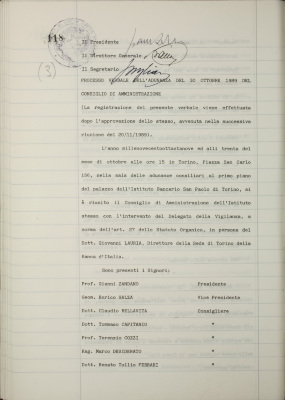 118
Il Presidente
Il Direttore Generale
Il Segretario
(3)
PROCESSO VERBALE DELL'ADUNANZA DEL 30 OTTOBRE 1989 DEL
CONSIGLIO DI AMMINISTRAZIONE
(La registrazione del presente verbale viene effettuata
dopo l'approvazione dello stesso, avvenuta nella successiva
riunione del 20/11/1989).
L'anno millenovecentottantanove ed alli trenta del
mese di ottobre alle ore 15 in Torino, Piazza San Carlo
156, nella sala delle adunanze consiliari al primo piano
del palazzo dell'Istituto Bancario San Paolo di Torino, si
è riunito il Consiglio di Amministrazione dell'Istituto
stesso con l'intervento del Delegato della Vigilanza, a
norma dell'art. 27 dello Statuto Organico, in persona del
Dott. Giovanni LAURIA, Direttore della Sede di Torino della
Banca d'Italia.
Sono presenti i Signori,
Prof. Gianni ZANDANO Presidente
Geom. Enrico SALZA Vice Presidente
Dott. Claudio BELLAVITA Consigliere
Dott. Tommaso CAPITANIO "
Prof. Terenzio COZZI "
Rag. Marco DESIDERATO "
Dott. Renato Tullio FERRARI "